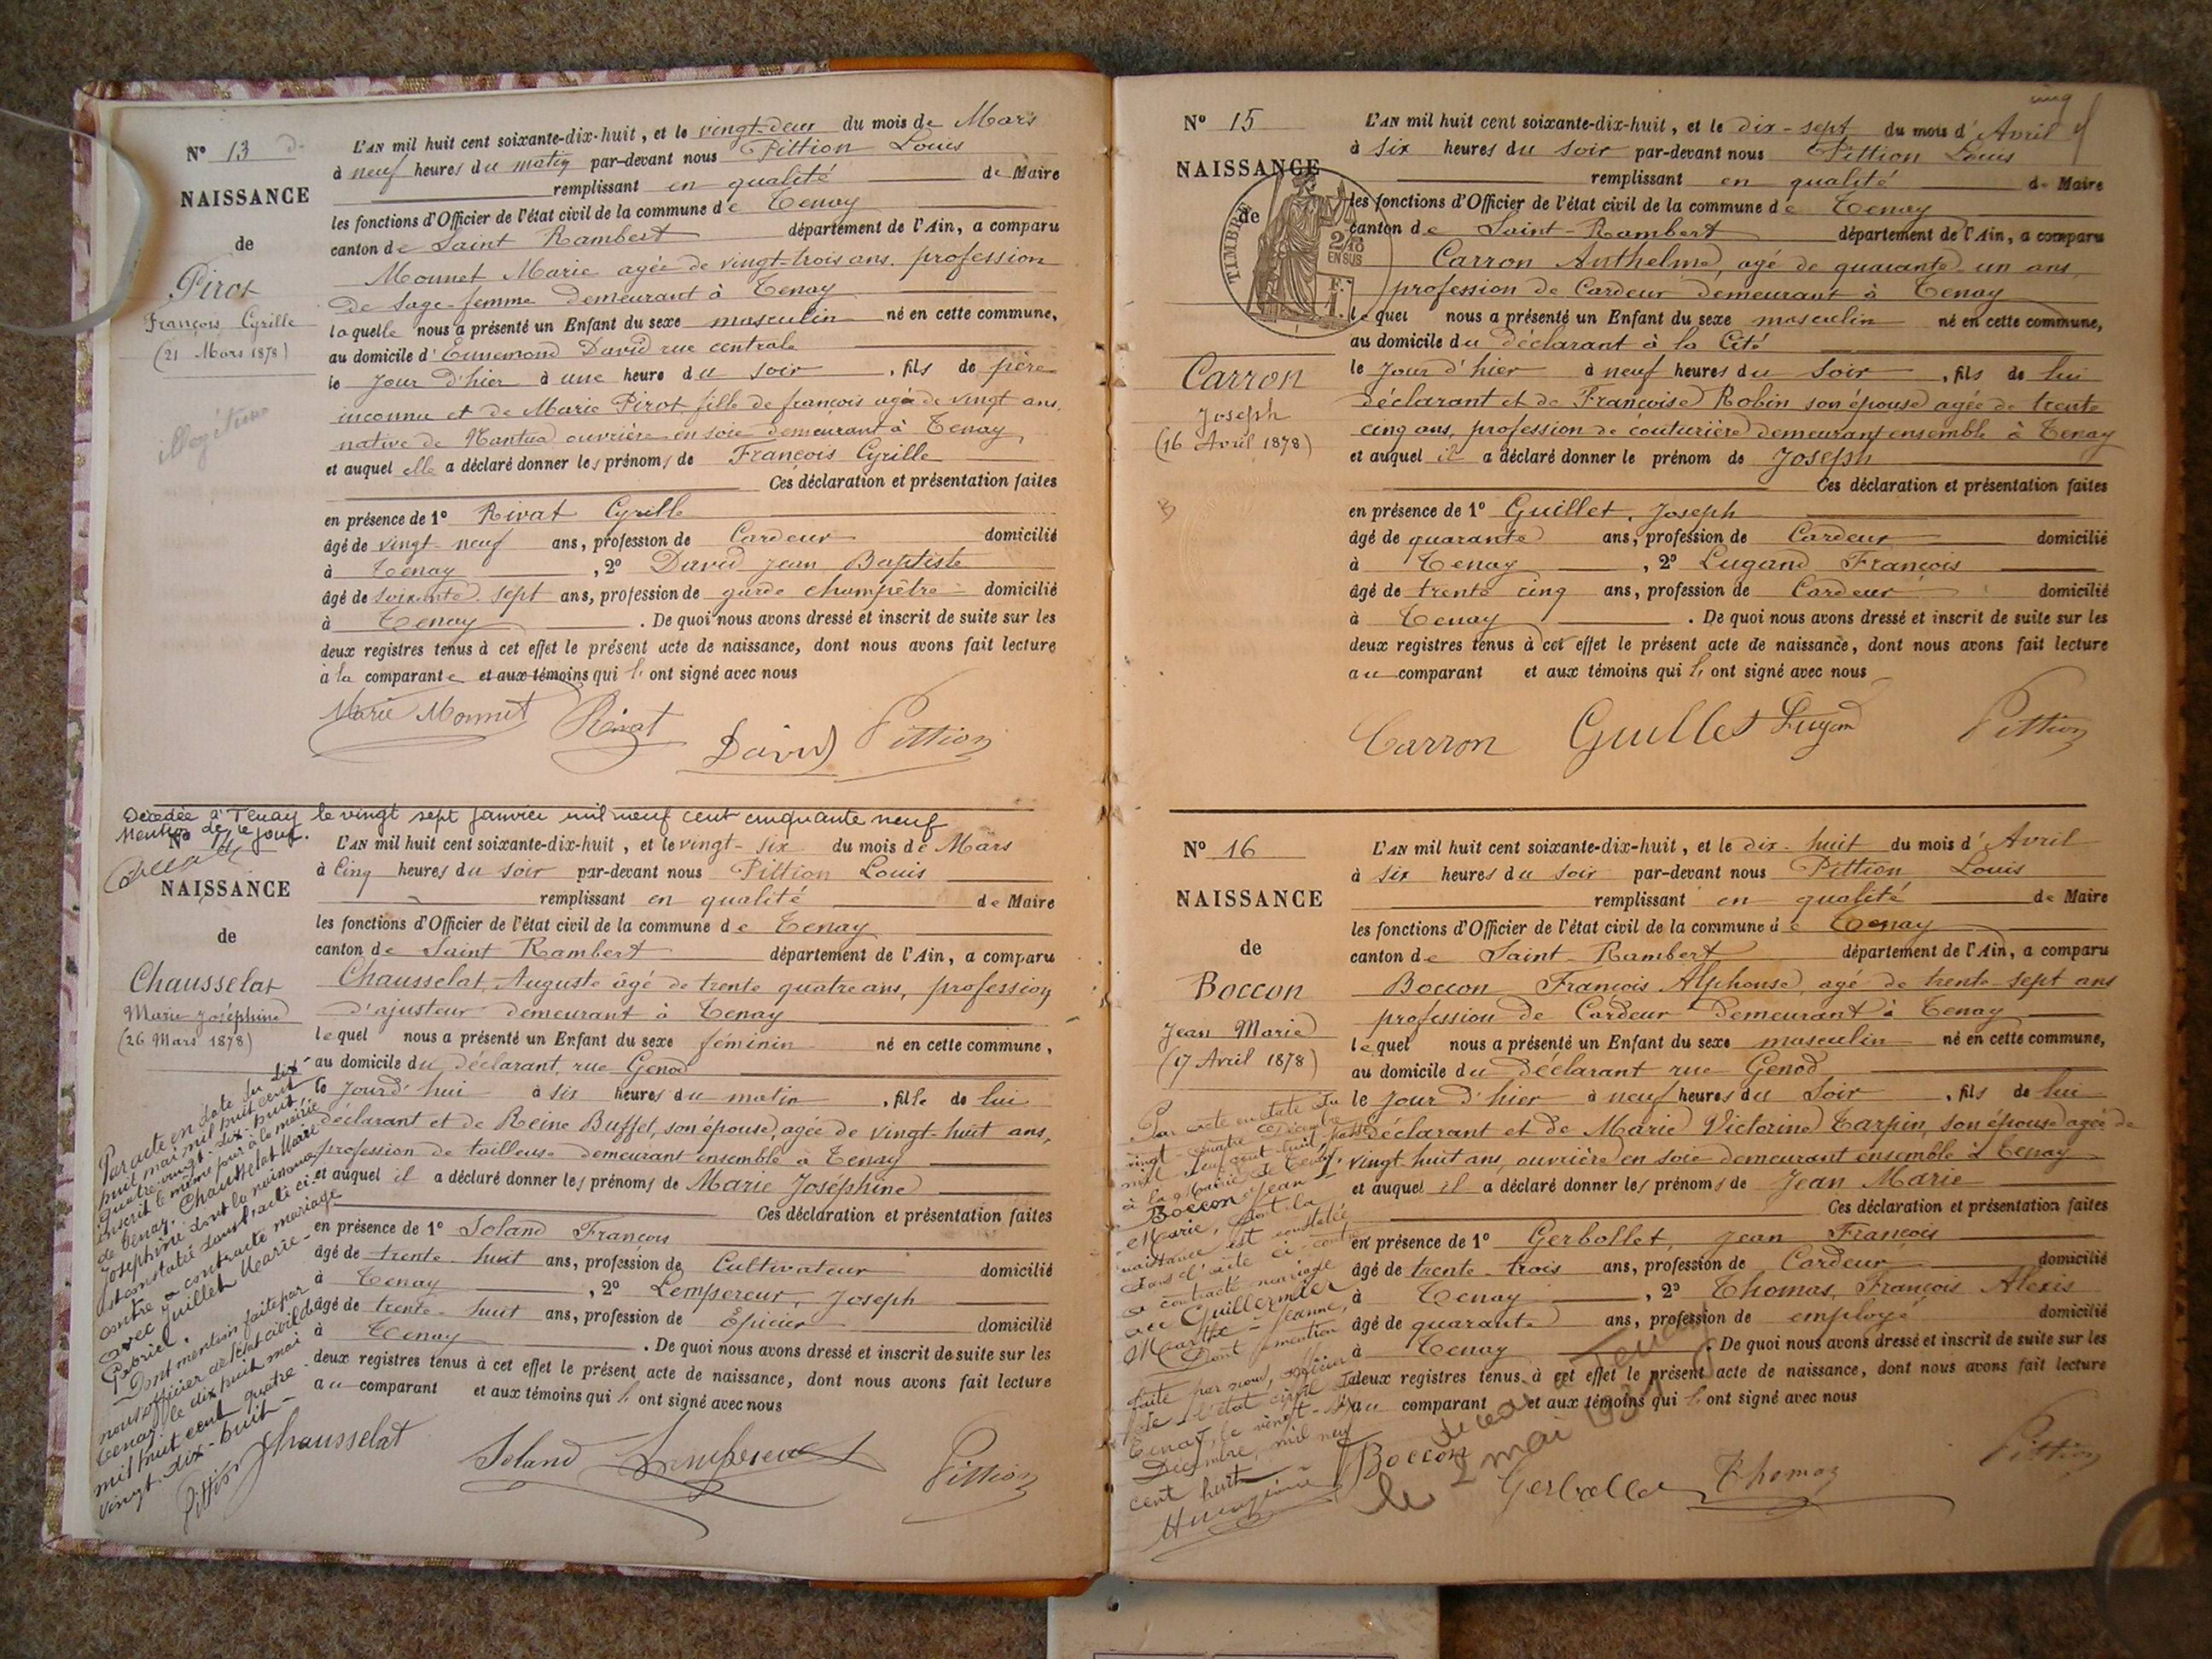 N° 13
NAISSANCE
de
Pirot
François Cyrille
(21 Mars 1878)
illégitime
L'AN mil huit cent soixante-dix-huit, et le vingt-deux du mois de Mars
à neuf heures du matin par-devant nous Pittion Louis
remplissant en qualité de Maire
les fonctions d'Officier de l'état civil de la commune de Tenay
canton de Saint Rambert département de l'Ain, a comparu
Monnet Marie agée de vingt-trois ans profession
de Sage-femme demeurant à Tenay
laquelle nous a présenté un Enfant du sexe masculin né en cette commune,
au domicile d'Ennemond David rue centrale
le jour d'hier à une heure du soir, fils de père
inconnu et de Marie Pirot fille de françois agée de vingt ans,
native de Nantua ouvrière en soie demeurant à Tenay,
et auquel elle a déclaré donner les prénoms de François Cyrille
Ces déclaration et présentation faites
en présence de 1° Rivat Cyrille
âgé de vingt-neuf ans, profession de Cardeur domicilié
à Tenay, 2° David Jean Baptiste
âgé de soixante-sept ans, profession de garde champêtre domicilié
à Tenay. De quoi nous avons dressé et inscrit de suite sur les
deux registres tenus à cet effet le présent acte de naissance, dont nous avons fait lecture
à la comparante et aux témoins qui l'ont signé avec nous
Marie Monnet Rivat David Pittion
Décédée à Tenay le vingt sept Janvier mil neuf cent cinquante neuf
Mention de ce jour.
N° 14
NAISSANCE
de
Chausselat
Marie Joséphine
(26 Mars 1878)
Par acte en date du dix
huit mai mil huit cent
quatre-vingt-dix-huit,
inscrit le même jour à la mairie
de Tenay, Chausselat Marie
Joséphine dont la naissance
est constatée dans l'acte ci-
contre a contracté mariage
avec Juillet Marie-
Gabriel.
Dont mention faite par
nous officier de l'état civil de
Tenay, le dix huit mai
mil huit cent quatre
vingt-dix-huit-
Pittion
L'AN mil huit cent soixante-dix-huit, et le vingt-six du mois de Mars
à Cinq heures du soir par-devant nous Pittion Louis
remplissant en qualité de Maire
les fonctions d'Officier de l'état civil de la commune de Tenay
canton de Saint Rambert département de l'Ain, a comparu
Chausselat, Auguste âgé de trente quatre ans, profession
d'ajusteur demeurant à Tenay
lequel nous a présenté un Enfant du sexe féminin né en cette commune,
au domicile du déclarant, rue Genod
le jourd'hui à six heures du matin, fille de lui
déclarant et de Reine Buffet, son épouse, agée de vingt-huit ans,
profession de tailleuse demeurant ensemble à Tenay
et auquel il a déclaré donner les prénoms de Marie Joséphine
Ces déclaration et présentation faites
en présence de 1° Soland François
âgé de trente-huit ans, profession de Cultivateur domicilié
à Tenay, 2° Lempereur, Joseph
âgé de trente-huit ans, profession de Épicier domicilié
à Tenay. De quoi nous avons dressé et inscrit de suite sur les
deux registres tenus à cet effet le présent acte de naissance, dont nous avons fait lecture
au comparant et aux témoins qui l'ont signé avec nous
Chausselat Soland Lempereur Pittion
N° 15
NAISSANCE
de
TIMBRE
2/10
EN SUS
Carron
Joseph
(16 Avril 1878)
L'AN mil huit cent soixante-dix-huit, et le dix-sept du mois d'Avril
à six heures du soir par-devant nous Pittion Louis
remplissant en qualité de Maire
les fonctions d'Officier de l'état civil de la commune de Tenay
canton de Saint-Rambert département de l'Ain, a comparu
Carron Anthelme, agé de quarante-un ans,
profession de Cardeur demeurant à Tenay
lequel nous a présenté un Enfant du sexe masculin né en cette commune,
au domicile du déclarant à la Cité
le jour d'hier à neuf heures du soir, fils de lui
déclarant et de Françoise Robin son épouse agée de trente
cinq ans, profession de couturière demeurant ensemble à Tenay
et auquel il a déclaré donner le prénom de Joseph
Ces déclaration et présentation faites
en présence de 1° Guillet, Joseph
âgé de quarante ans, profession de Cardeur domicilié
à Tenay, 2° Lugand François
âgé de trente cinq ans, profession de Cardeur domicilié
à Tenay. De quoi nous avons dressé et inscrit de suite sur les
deux registres tenus à cet effet le présent acte de naissance, dont nous avons fait lecture
au comparant et aux témoins qui l'ont signé avec nous
Carron Guillet Lugand Pittion
N° 16
NAISSANCE
de
Boccon
Jean Marie
(17 Avril 1878)
Par acte en date du
vingt-quatre Décembre
mil neuf cent huit passé
à la Mairie de Tenay,
Boccon Jean-
Marie, dont la
naissance est constatée
dans l'acte ci-contre
a contracté mariage
avec Guillermier
Marthe-Jeanne,
Dont mention
faite par nous, officier
de l'état civil de
Tenay, le vingt-
Décembre, mil neuf
cent huit
L'AN mil huit cent soixante-dix-huit, et le dix-huit du mois d'Avril
à six heures du soir par-devant nous Pittion Louis
remplissant en qualité de Maire
les fonctions d'Officier de l'état civil de la commune de Tenay
canton de Saint-Rambert département de l'Ain, a comparu
Boccon François Alphonse, agé de trente-sept ans
profession de Cardeur Demeurant à Tenay
lequel nous a présenté un Enfant du sexe masculin né en cette commune,
au domicile du Déclarant rue Genod
le jour d'hier à neuf heures du soir, fils de lui
déclarant et de Marie Victorine Tarpin, son épouse agée de
vingt-huit ans, ouvrière en soie demeurant ensemble à Tenay
et auquel il a déclaré donner les prénoms de Jean Marie
Ces déclaration et présentation faites
en présence de 1° Gerbollet, Jean François
âgé de trente-trois ans, profession de Cardeur domicilié
à Tenay, 2° Thomas, François Alexis
âgé de quarante ans, profession de employé domicilié
à Tenay. De quoi nous avons dressé et inscrit de suite sur les
deux registres tenus à cet effet le présent acte de naissance, dont nous avons fait lecture
au comparant et aux témoins qui l'ont signé avec nous
Boccon Gerbollet Thomas Pittion
décédé à Tenay
le 2 mai 1931